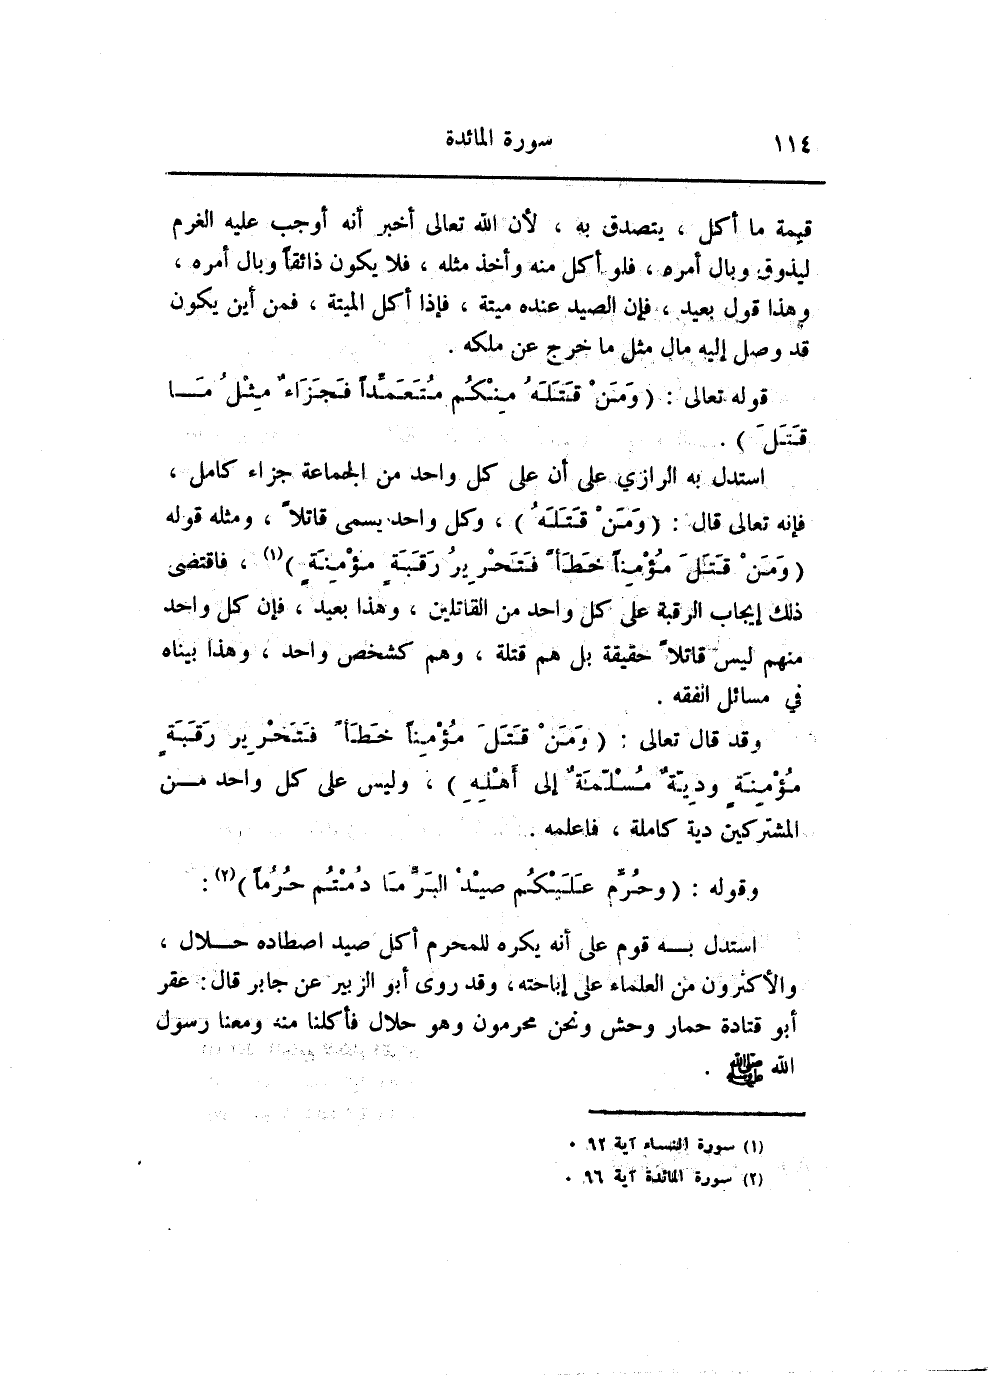 ١١٤
سورة المائدة
قيمة ما أكل ، يتصدق به ، لأن الله تعالى أخبر أنه أوجب عليه الغرم
ليذوق وبال أمره ، فلو أكل منه وأخذ مثله ، فلا يكون ذائقاً وبال أمره ،
وهذا قول بعيد ، فإن الصيد عنده ميتة ، فإذا أكل الميتة ، فمن أين يكون
قد وصل إليه مال مثل ما خرج عن ملكه .
قوله تعالى : ( وَمَنْ قَتَلَهُ مِنْكُم مُتَعَمِّداً فَجَزَاءٌ مِثْلُ مَا
قَتَلَ ) .
استدل به الرازي على أن على كل واحد من الجماعة جزاء كامل ،
فإنه تعالى قال : ( وَمَنْ قَتَلَهُ ) ، وكل واحد يسمى قاتلاً ، ومثله قوله
( وَمَنْ قَتَلَ مُؤْمِناً خَطَأً فَتَحْرِيرُ رَقَبَةٍ مؤْمِنَةٍ )(١) ، فاقتضى
ذلك إيجاب الرقبة على كل واحد من القاتلين ، وهذا بعيد ، فإن كل واحد
منهم ليس قاتلاً حقيقة بل هم قتلة ، وهم كشخص واحد ، وهذا بيناه
في مسائل الفقه .
وقد قال تعالى : ( وَمَنْ قَتَلَ مُؤْمِناً خَطَأً فَتَحْرِير رَقَبَةٍ
مُؤْمِنَةٍ ودِيَةٌ مُسَلَّمَةٌ إلى أَهْلِهِ ) ، وليس على كل واحد من
المشتركين دية كاملة ، فاعلمه .
وقوله : ( وحُرِّم عَلَيْكُم صيْدُ البَرِّ مَا دُمْتُم حُرُماً )(٢) :
استدل به قوم على أنه يكره للمحرم أكل صيد اصطاده حلال ،
والأكثرون من العلماء على إباحته، وقد روى أبو الزبير عن جابر قال : عقر
أبو قتادة حمار وحش ونحن محرمون وهو حلال فأكلنا منه ومعنا رسول
الله ﷺ .
(١) سورة النساء آية ٩٢ .
(٢) سورة المائدة آية ٩٦ .